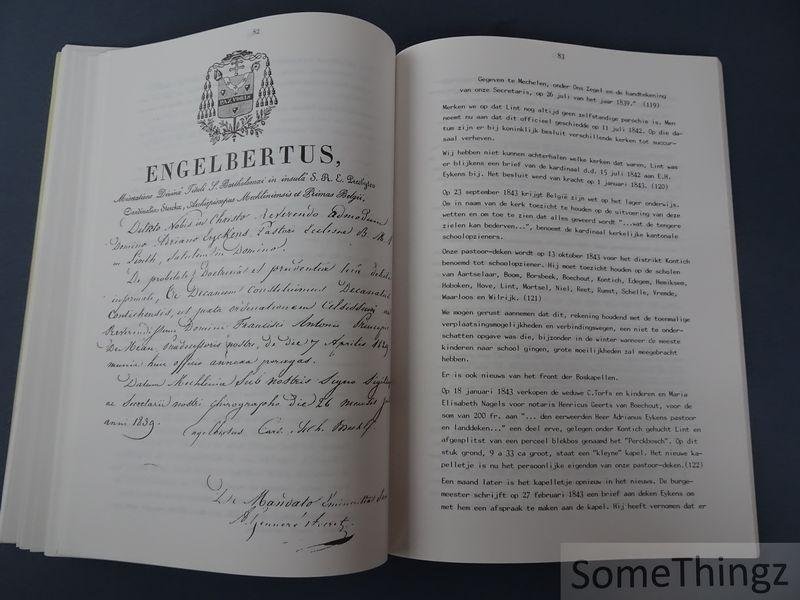 82
PAX VOBIS
ENGELBERTUS,
Miseratione Divinâ Tituli S. Bartholomæi in insula S. R. E. Presbyter
Cardinalis Sterckx, Archiepiscopus Mechliniensis et Primas Belgii,
Dilecto Nobis in Christo Reverendo admodum
Domino Adriano Eyckens Pastori Ecclesiæ B. M.
in Linth, salutem in Domino.
De probitate, doctrina et prudentia tua
informati, Te Decanum Constituimus Decanatus
Contichensis, ut juxta ordinationem Celsissimi
Reverendissimi Domini Francisci Antonii Principis
De Méan, prædecessoris nostri, de die 7 Aprilis
munia huic officio annexa peragas.
Datum Mechliniæ Sub nostris Signo
ac Secretarii nostri chirographo die 26 mensis
anni 1839.
Engelbertus Card. Arch. Mechl.
De Mandato
83
Gegeven te Mechelen, onder Ons Zegel en de handtekening
van onze Secretaris, op 26 juli van het jaar 1839." (119)
Merken we op dat Lint nog altijd geen zelfstandige parochie is. Men
neemt nu aan dat dit officieel geschiedde op 11 juli 1842. Op die da-
tum zijn er bij koninklijk besluit verschillende kerken tot succur-
saal verheven.
Wij hebben niet kunnen achterhalen welke kerken dat waren. Lint was
er blijkens een brief van de kardinaal d.d. 15 juli 1842 aan E.H.
Eykens bij. Het besluit werd van kracht op 1 januari 1843. (120)
Op 23 september 1843 krijgt België zijn wet op het lager onderwijs.
Om in naam van de kerk toezicht te houden op de uitvoering van deze
wetten en om toe te zien dat alles geweerd wordt "...wat de tengere
zielen kan bederven...", benoemd de kardinaal kerkelijke kantonale
schoolopzieners.
Onze pastoor-deken wordt op 13 oktober 1843 voor het distrikt Kontich
benoemd tot schoolopziener. Hij moet toezicht houden op de scholen
van Aartselaar, Boom, Borsbeek, Boechout, Kontich, Edegem, Hemiksem,
Hoboken, Hove, Lint, Mortsel, Niel, Reet, Rumst, Schelle, Vremde,
Waarloos en Wilrijk. (121)
We mogen gerust aannemen dat dit, rekening houdend met de toenmalige
verplaatsingsmogelijkheden en verbindingswegen, een niet te onder-
schatten opgave was die, bijzonder in de winter wanneer de meeste
kinderen naar school gingen, grote moeilijkheden zal meegebracht
hebben.
Er is ook nieuws van het front der Boskapellen.
Op 18 januari 1843 verkopen de weduwe C.Torfs en kinderen en Maria
Elisabeth Nagels voor notaris Henricus Geerts van Boechout, voor de
som van 200 fr. aan "... den eerweerden Heer Adrianus Eykens pastoor
en landdeken..." een deel erve, gelegen onder Kontich gehucht Lint en
afgesplitst van een perceel blekbos genaamd het "Perckbosch". Op dit
stuk grond, 9 a 33 ca groot, staat een "kleyne" kapel. Het nieuwe ka-
pelletje is nu het persoonlijke eigendom van onze pastoor-deken.(122)
Een maand later is het kapelletje opnieuw in het nieuws. De burge-
meester schrijft op 27 februari 1843 een brief aan deken Eykens om
met hem een afspraak te maken aan de kapel. Hij heeft vernomen dat er
SomeThingz